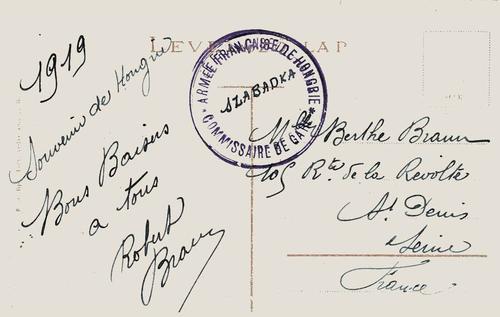 LEVELEZŐ-LAP
1919
Souvenir de Hongrie
Bons Baisers
a tous
Robert
Braun
* ARMÉE FRANÇAISE DE HONGRIE *
SZABADKA
COMMISSAIRE DE GARE
Mlle Berthe Braun
105 Rte de la Révolte
St Denis
Seine
France